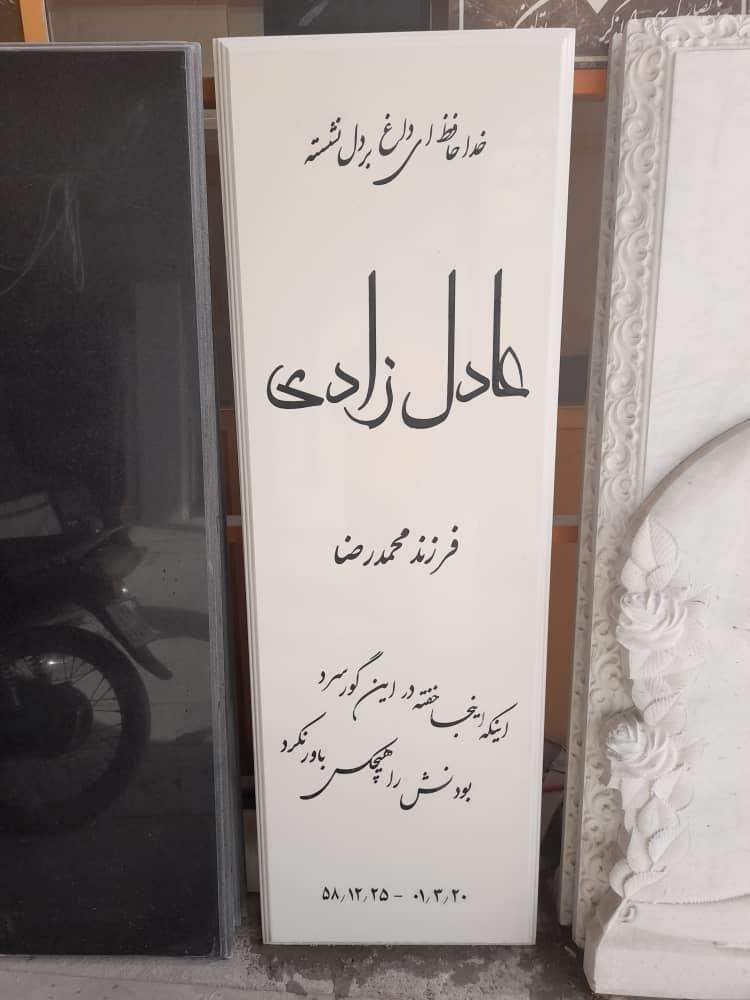 خداحافظ ای داغ بر دل نشسته
عادل زادی
فرزند محمدرضا
اینکه اینجا خفته در این گور سرد
بودنش را هیچکس باور نکرد
۵۸٫۱۲٫۲۵ - ۰۱٫۳٫۲۰